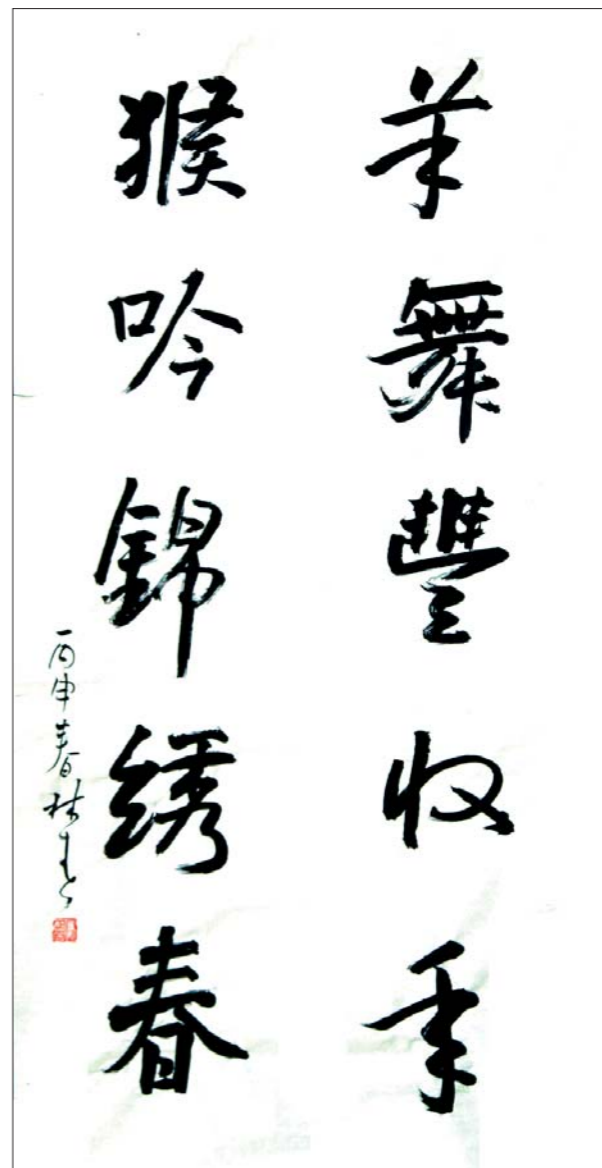 羊舞豐收年
猴吟錦绣春
丙申春林